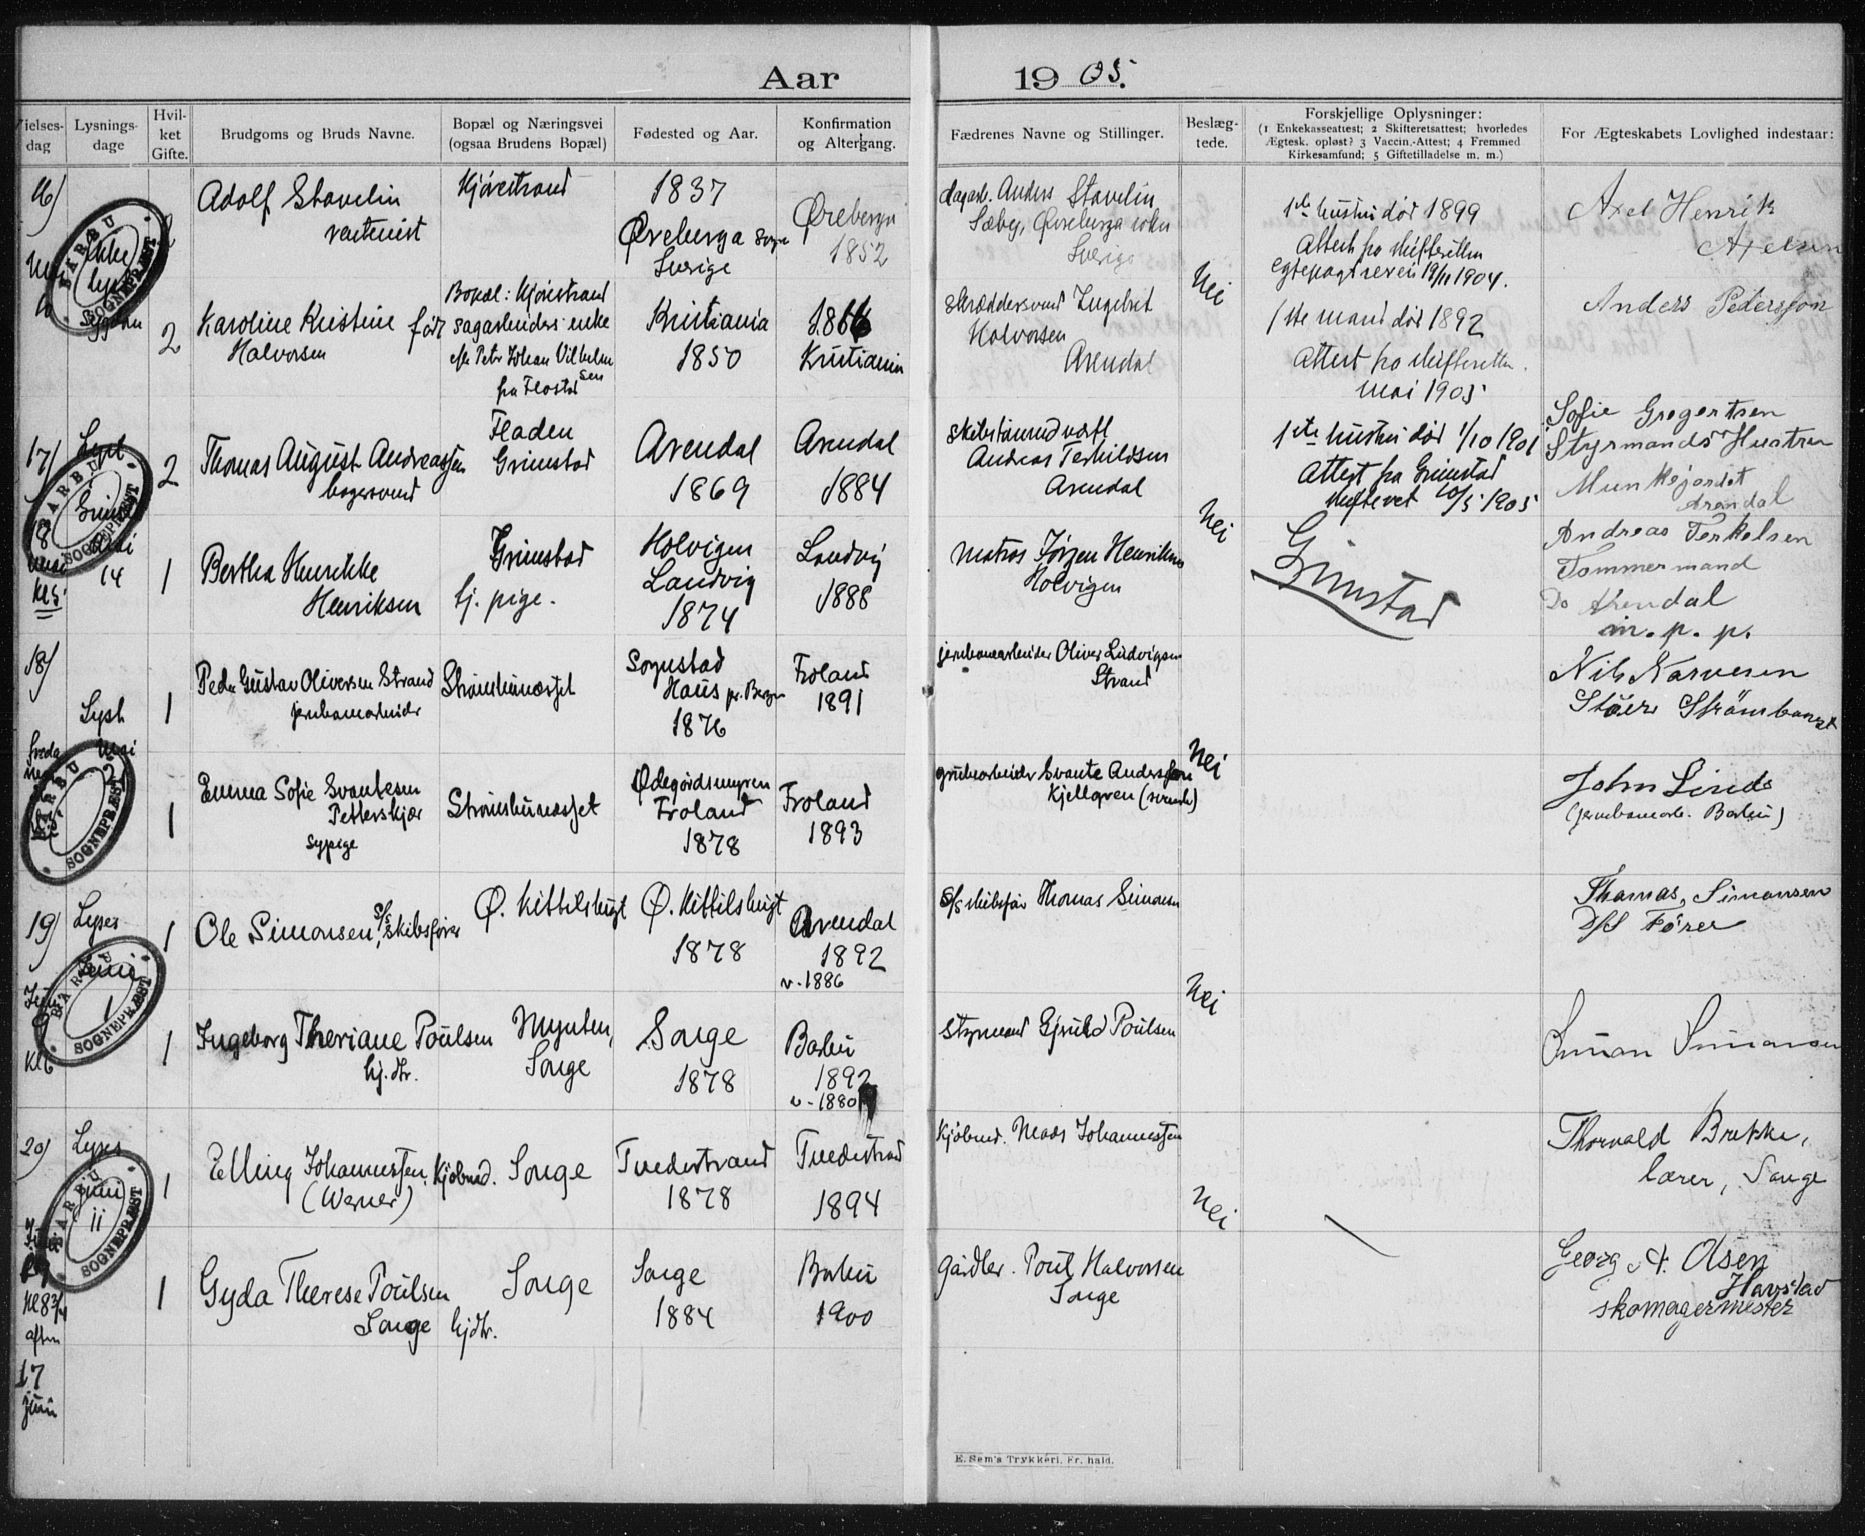 Aar 1905.
Vielses-dag
Lysnings-dage
Hvil-ket Gifte.
Brudgoms og Bruds Navne.
Bopæl og Næringsvei (ogsaa Brudens Bopæl)
Fødested og Aar.
Konfirmation og Altergang.
Fædrenes Navne og Stillinger.
Beslæg-tede.
Forskjellige Oplysninger:
(1 Enkekasseattest; 2 Skifteretsattest; hvorledes
Ægtesk. opløst? 3 Vaccin.-Attest; 4 Fremmed
Kirkesamfund; 5 Giftetilladelse m. m.)
For Ægteskabets Lovlighed indestaar:
16)
BARBU SOGNEPRÆST
ikke
lyst
2
Adolf Stavelin
Kjørestrand
1837
Øreberga Sogn
Sverige
Øreberga
1852
Anders Stavelin
Sæby, Øreberga
Sverige
1ste hustru død 1899
Attest fra skifteretten
19/11 1904.
Axel Henrik
Axelsen
2
Karoline Kristine født
Halvorsen
Bopæl: Kjørestrand
sagarbeiders enke
efter Peter Johan Vilhelmsen
fra Flosta
Kristiania
1850
1866
Kristiania
Ingebret
Halvorsen
Arendal
Nei
1ste mand død 1892
Attest fra skifteretten.
mai 1905
Anders Pedersson
17)
Lyst
Grimstad
mai
14
BARBU SOGNEPRÆST
18
kl 5
2
Thomas August Andreassen
bagersvend
Fladen
Grimstad
Arendal
1869
Arendal
1884
Andreas Terkildsen
Arendal
1ste hustru død 1/10 1901
Attest fra Grimstad
20/5 1905
Sofie Gregertsen
Styrmands Hustru
Munkejordet
Arendal
1
Bertha Henrikke
Henriksen
Grimstad
tj. pige.
Holvigen
Landvig
1874
Landvig
1888
matros Jørgen Henriksen
Holvigen
Nei
Grimstad
Andreas Terkelsen
Tømmermand
Do Arendal
m. p. p.
18)
Lyst
mai
BARBU SOGNEPRÆST
1
Peder Gustav Oliversen Strand
jernbanearbeider
Strømsbunæsset
Sognstad
Haus pr. Bergen
1876
Froland
1891
jernbanearbeider Oliver Ludvigsen
Strand
Nils Narvesen
Strømbonæset
1
Emma Sofie Svantesen
Petterskjær
sypige
Strømsbunæsset
Ødegårdsmyren
Froland
1878
Froland
1893
grubearbeider Svante Anderssen
Kjellgren (svensk)
Nei
John Lind
(jernbanearb. Barbu)
19)
Lyses
juni
1
BARBU SOGNEPRÆST
kl 6
1
Ole Simonsen, S/S skibsfører
Ø. Kittelsbugt
Ø. Kittilsbugt
1878
Arendal
1892
v. 1886
S/S skibsfør Thomas Simonsen
Thomas, Simonsen
D/S Fører
1
Ingeborg Theriane Poulsen
hj. dtr.
Mynten,
Songe
Songe
1878
Barbu
1892
v. 1880
styrmand Gjeruld Poulsen
Nei
Simon Simonsen
20)
Lyses
juni
11
BARBU SOGNEPRÆST
kl 8 3/4
aften
17
juni
1
Elling Johannessen, kjøbmd.
(Werner)
Songe
Tvedestrand
1878
Tvedestrand
1894
Kjøbmd. Mads Johannessen
Nei
Thorvald Brekke,
lærer, Songe
1
Gyda Therese Poulsen
Songe hjdtr.
Songe
Songe
1884
Barbu
1900
gårdbr. Poul Halvorsen
Songe
Georg A. Olsen
Havstad
skomagermester
E. Sem's Trykkeri, Fr. hald.